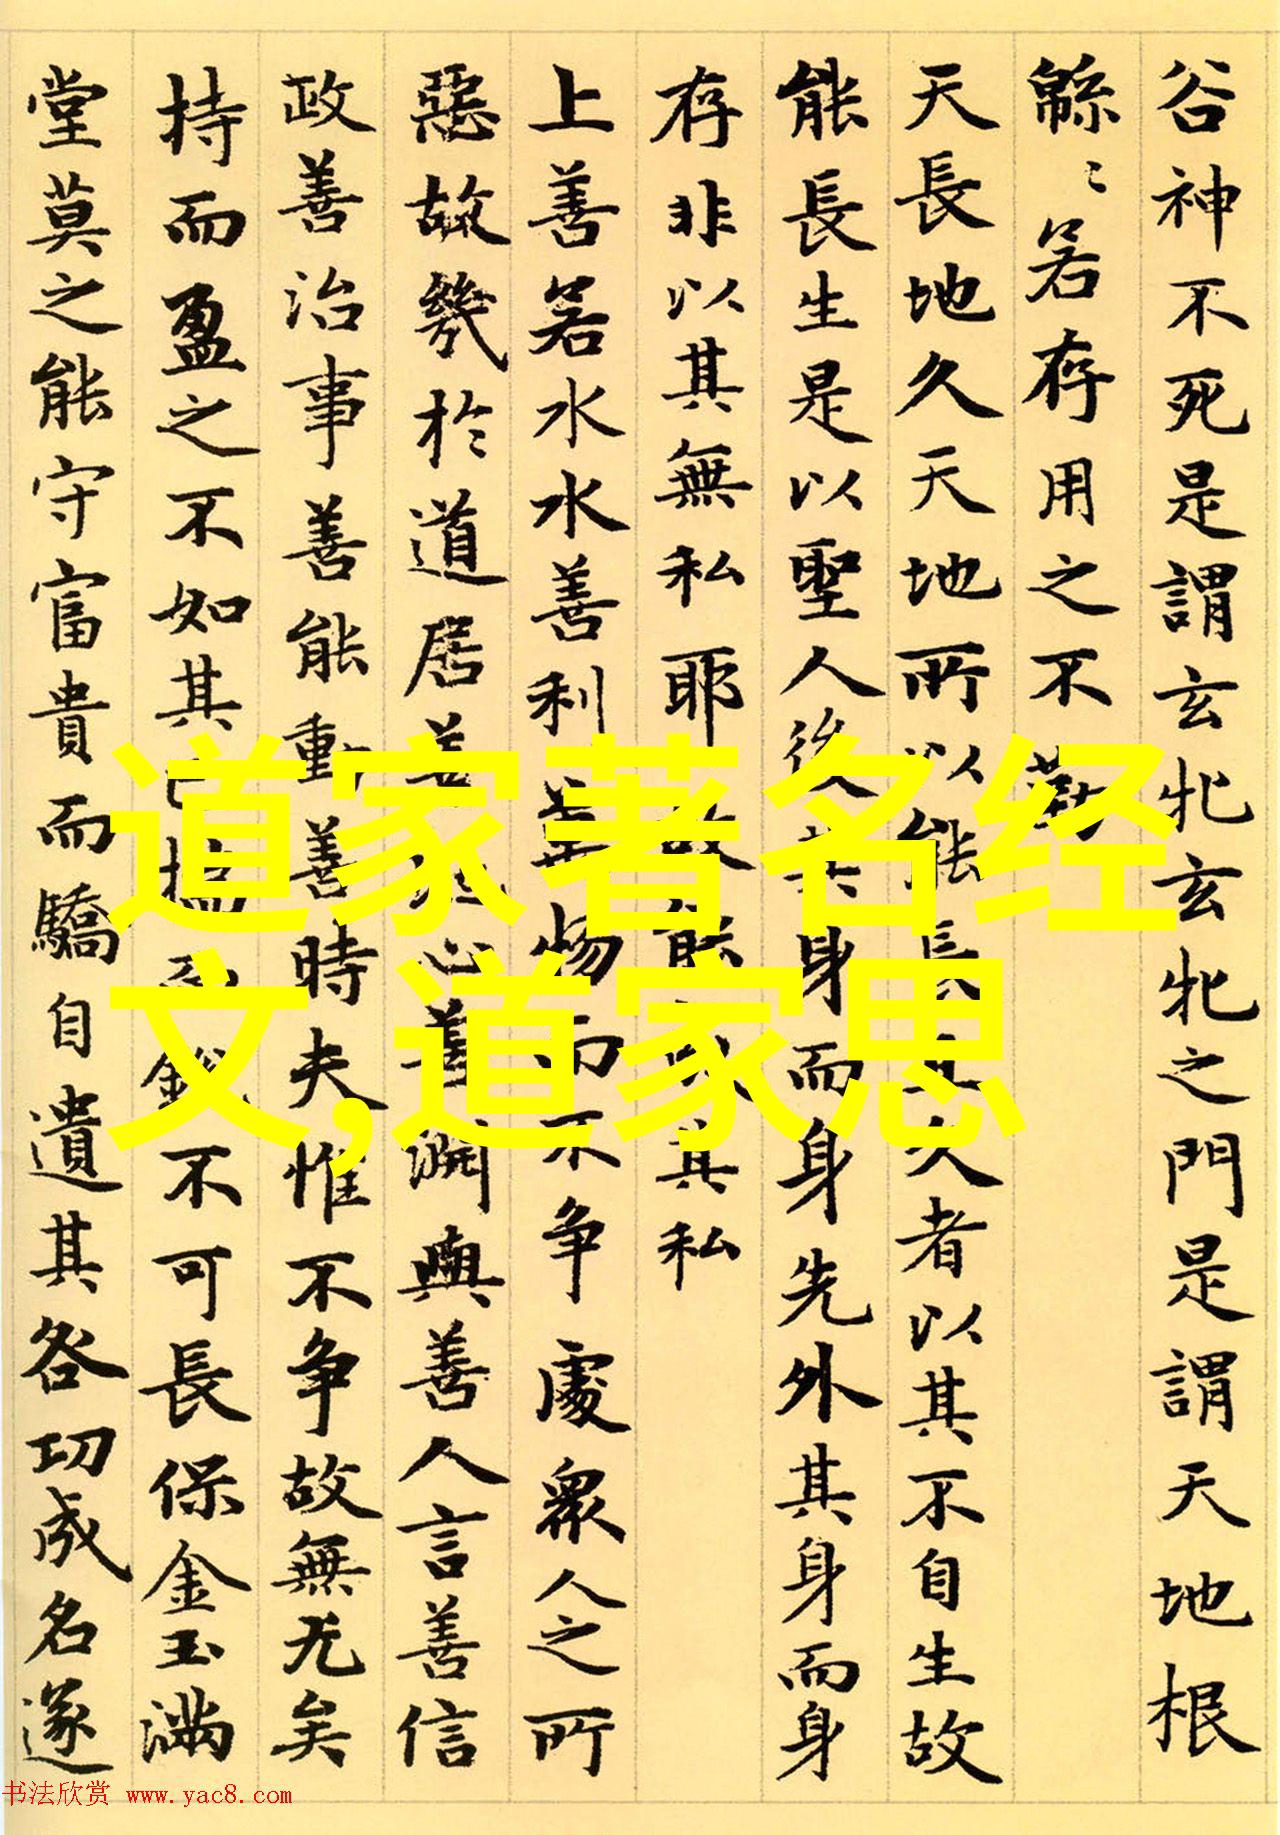 谷神不死是謂玄牝玄牝之門是謂天地根
緜〻若存用之不勤
天長地久天地所以能長且久者以其不自生故
能長生是以聖人後其身而身先外其身而身
存非以其無私耶故能成其私
上善若水水善利萬物而不争處衆人之所
惡故幾於道居善地心善淵與善人言善信
政善治事善能動善時夫惟不争故無尤矣
持而盈之不如其已揣而銳不可長保金玉滿
堂莫之能守富貴而驕自遺其咎功成名遂
道家著名经
文,道家思
书法欣赏 www.yac8.com